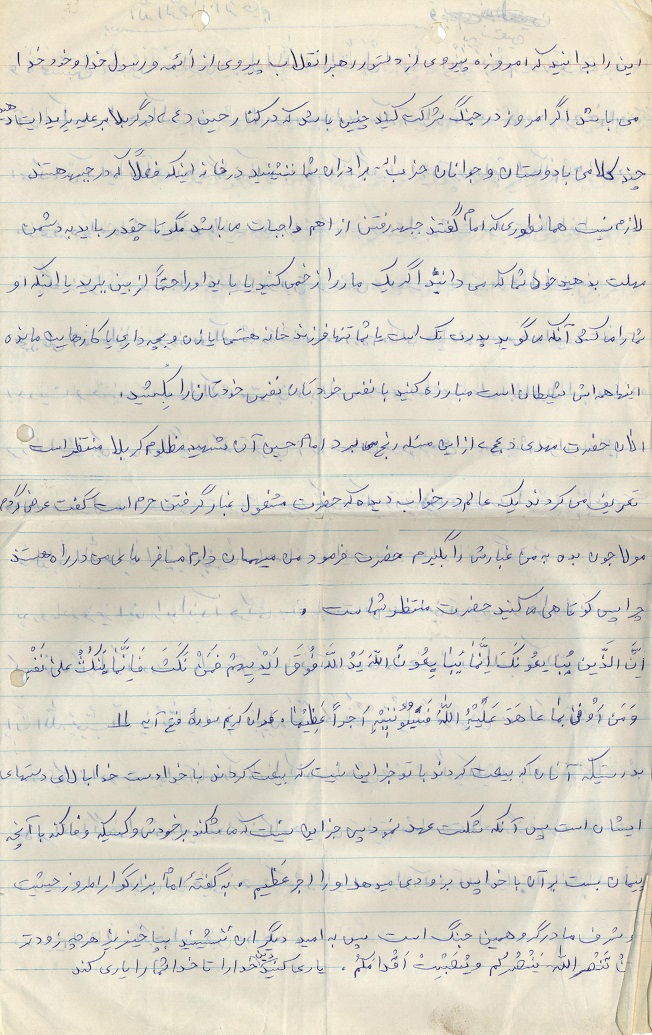 این را بدانید که امروزه پیروی از دستور رهبر انقلاب پیروی از ائمه و رسول خدا و خود خدا
می باشد اگر امروز در جنگ شرکت کنید چنین باشد که در کنار حسین (ع) در کربلا بر علیه یزید ایستاده‌اید
چند کلامی با دوستان و جوانان حزب ا... برادران شما ننشینید در خانه اینکه فعلاً که در جبهه هستند
لازم نیست همانطوری که امام گفتند جبهه رفتن از اهم واجبات می باشد مگر تا چقدر باید به دشمن
مهلت بدهید خود شما که می دانید اگر یک مار را زخمی کنید یا باید او را حتماً از بین ببرید یا اینکه او
شما را می کشد آنکه می گوید پدرت تک است یا شما تنها فرزند خانه هستی یا زن و بچه داری یا کارهایت مانده
اینها همه اش شیطان است مبارزه کنید با نفس خودتان نفس خودتان را بکشید.
الان حضرت مهدی (عج) از این مسئله رنج می برد امام حسین آن شهید مظلوم کربلا منتظر است
تعریف می کردند یک عالم در خواب دیده که حضرت مشغول غبار گرفتن حرم است گفت عرض کردم
مولا جون بده به من غبارش را بگیرم حضرت فرمود من میهمان دارم مسافر های من در راه هستند
چرا پس کوتاهی می کنید حضرت منتظر شماست.
اِنَّ الَّذینَ یُبایِعُونَکَ اِنَّما یُبایِعُونَ اللهَ یَدُ اللهِ فَوْقَ اَیْدیهِمْ فَمَنْ نَکَثَ فَاِنَّما یَنْکُثُ عَلی نَفْسِ
وَ مَن اَوْفی بِما عاهَدَ عَلَیْهُ اللهَ فَسَیُؤْتیهِ اَجْراً عَظیما. قرآن کریم سوره فتح آیه ۱۰
بدرستیکه آنان که بیعت کردند با تو جز این نیست که بیعت کردند با خدا دست خدا بالای دستهای
ایشان است پس آنکه شکست عهد نمود پس جز این نیست که می شکند بر خودش و کسیکه وفا کند با آنچه
پیمان بست بر آن با خدا پس بزودی میدهد او را اجر عظیم. به گفتهٔ امام بزرگوار امروز حیثیت
و شرف ما در گرو همین جنگ است پس به امید دیگران ننشینید بپا خیزید هر چه زودتر
اِنْ تَنْصُرُ الله یَنْصُرْکُم وَ یُثَبِّتْ اَقْدامَکُمْ. یاری کنید دین خدا را تا خدا شما را یاری کند